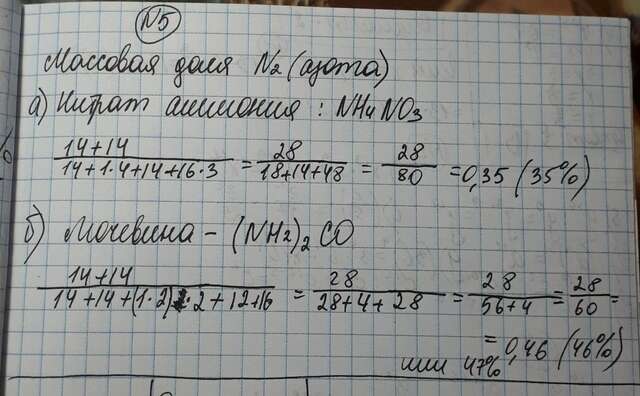 N5
Массовая доля N2 (азота)
а) Нитрат аммония : NH4NO3
14+14 / 14+1·4+14+16·3 = 28 / 18+14+48 = 28 / 80 = 0,35 (35%)
б) Мочевина – (NH2)2 CO
14+14 / 14+14+(1·2)·2+12+16 = 28 / 28+4+28 = 28 / 56+4 = 28 / 60 =
= 0,46 (46%)
или 47%